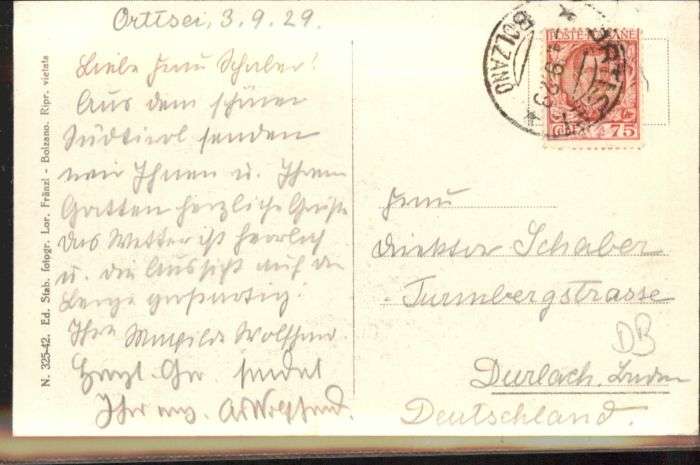 Orttsei, 3.9.29.
Liebe Frau Schaber!
Aus dem schönen
Südtirol senden
wir Ihnen u. Ihrem
Gatten herzliche Grüße
das Wetter ist herrlich
u. die Aussicht auf die
Berge großartig!
Ihre
Herzl. Gr. sendet
Ihr
POSTE ITALIANE
75
BOLZANO
Frau
Direktor Schaber
Turmbergstrasse
DB
Durlach, Baden
Deutschland.
N. 325-42. Ed. Stab. fotogr. Lor. Fränzl - Bolzano. Ripr. vietata